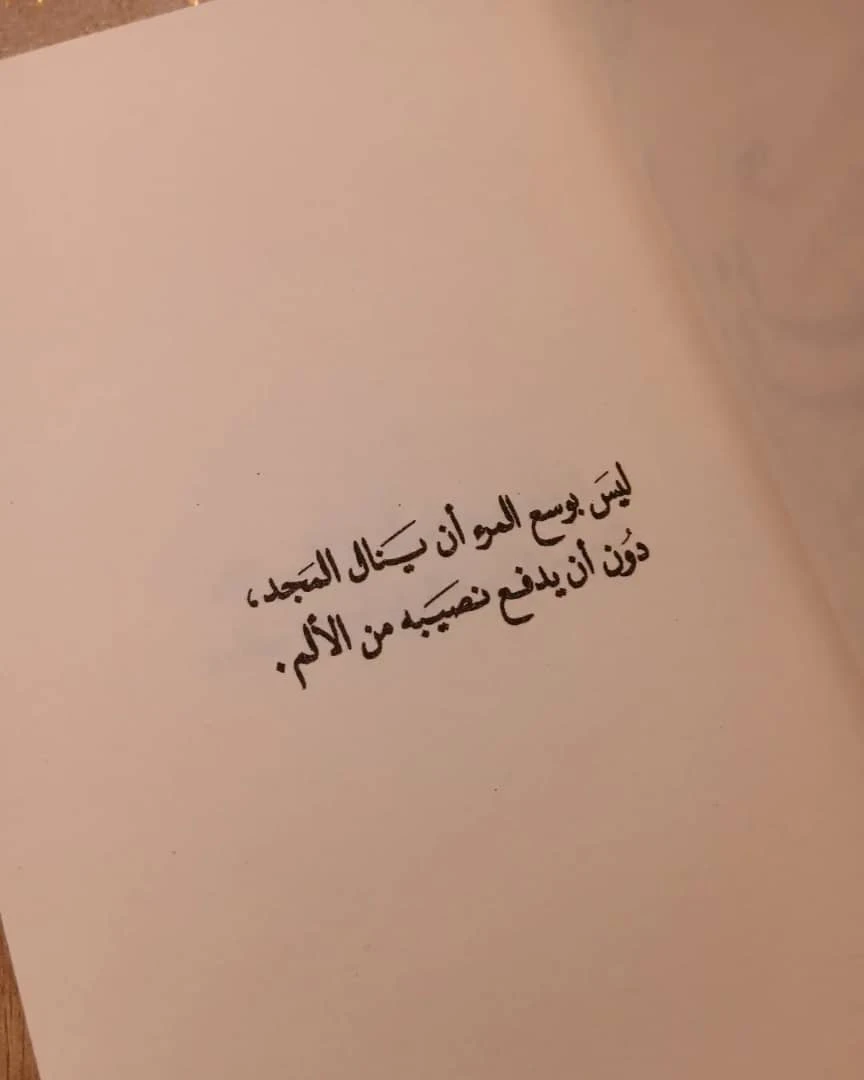 ليسَ بوسع المرء أن يَنال المَجد،
دوُن أن يدفع نصيَبه من الألم.